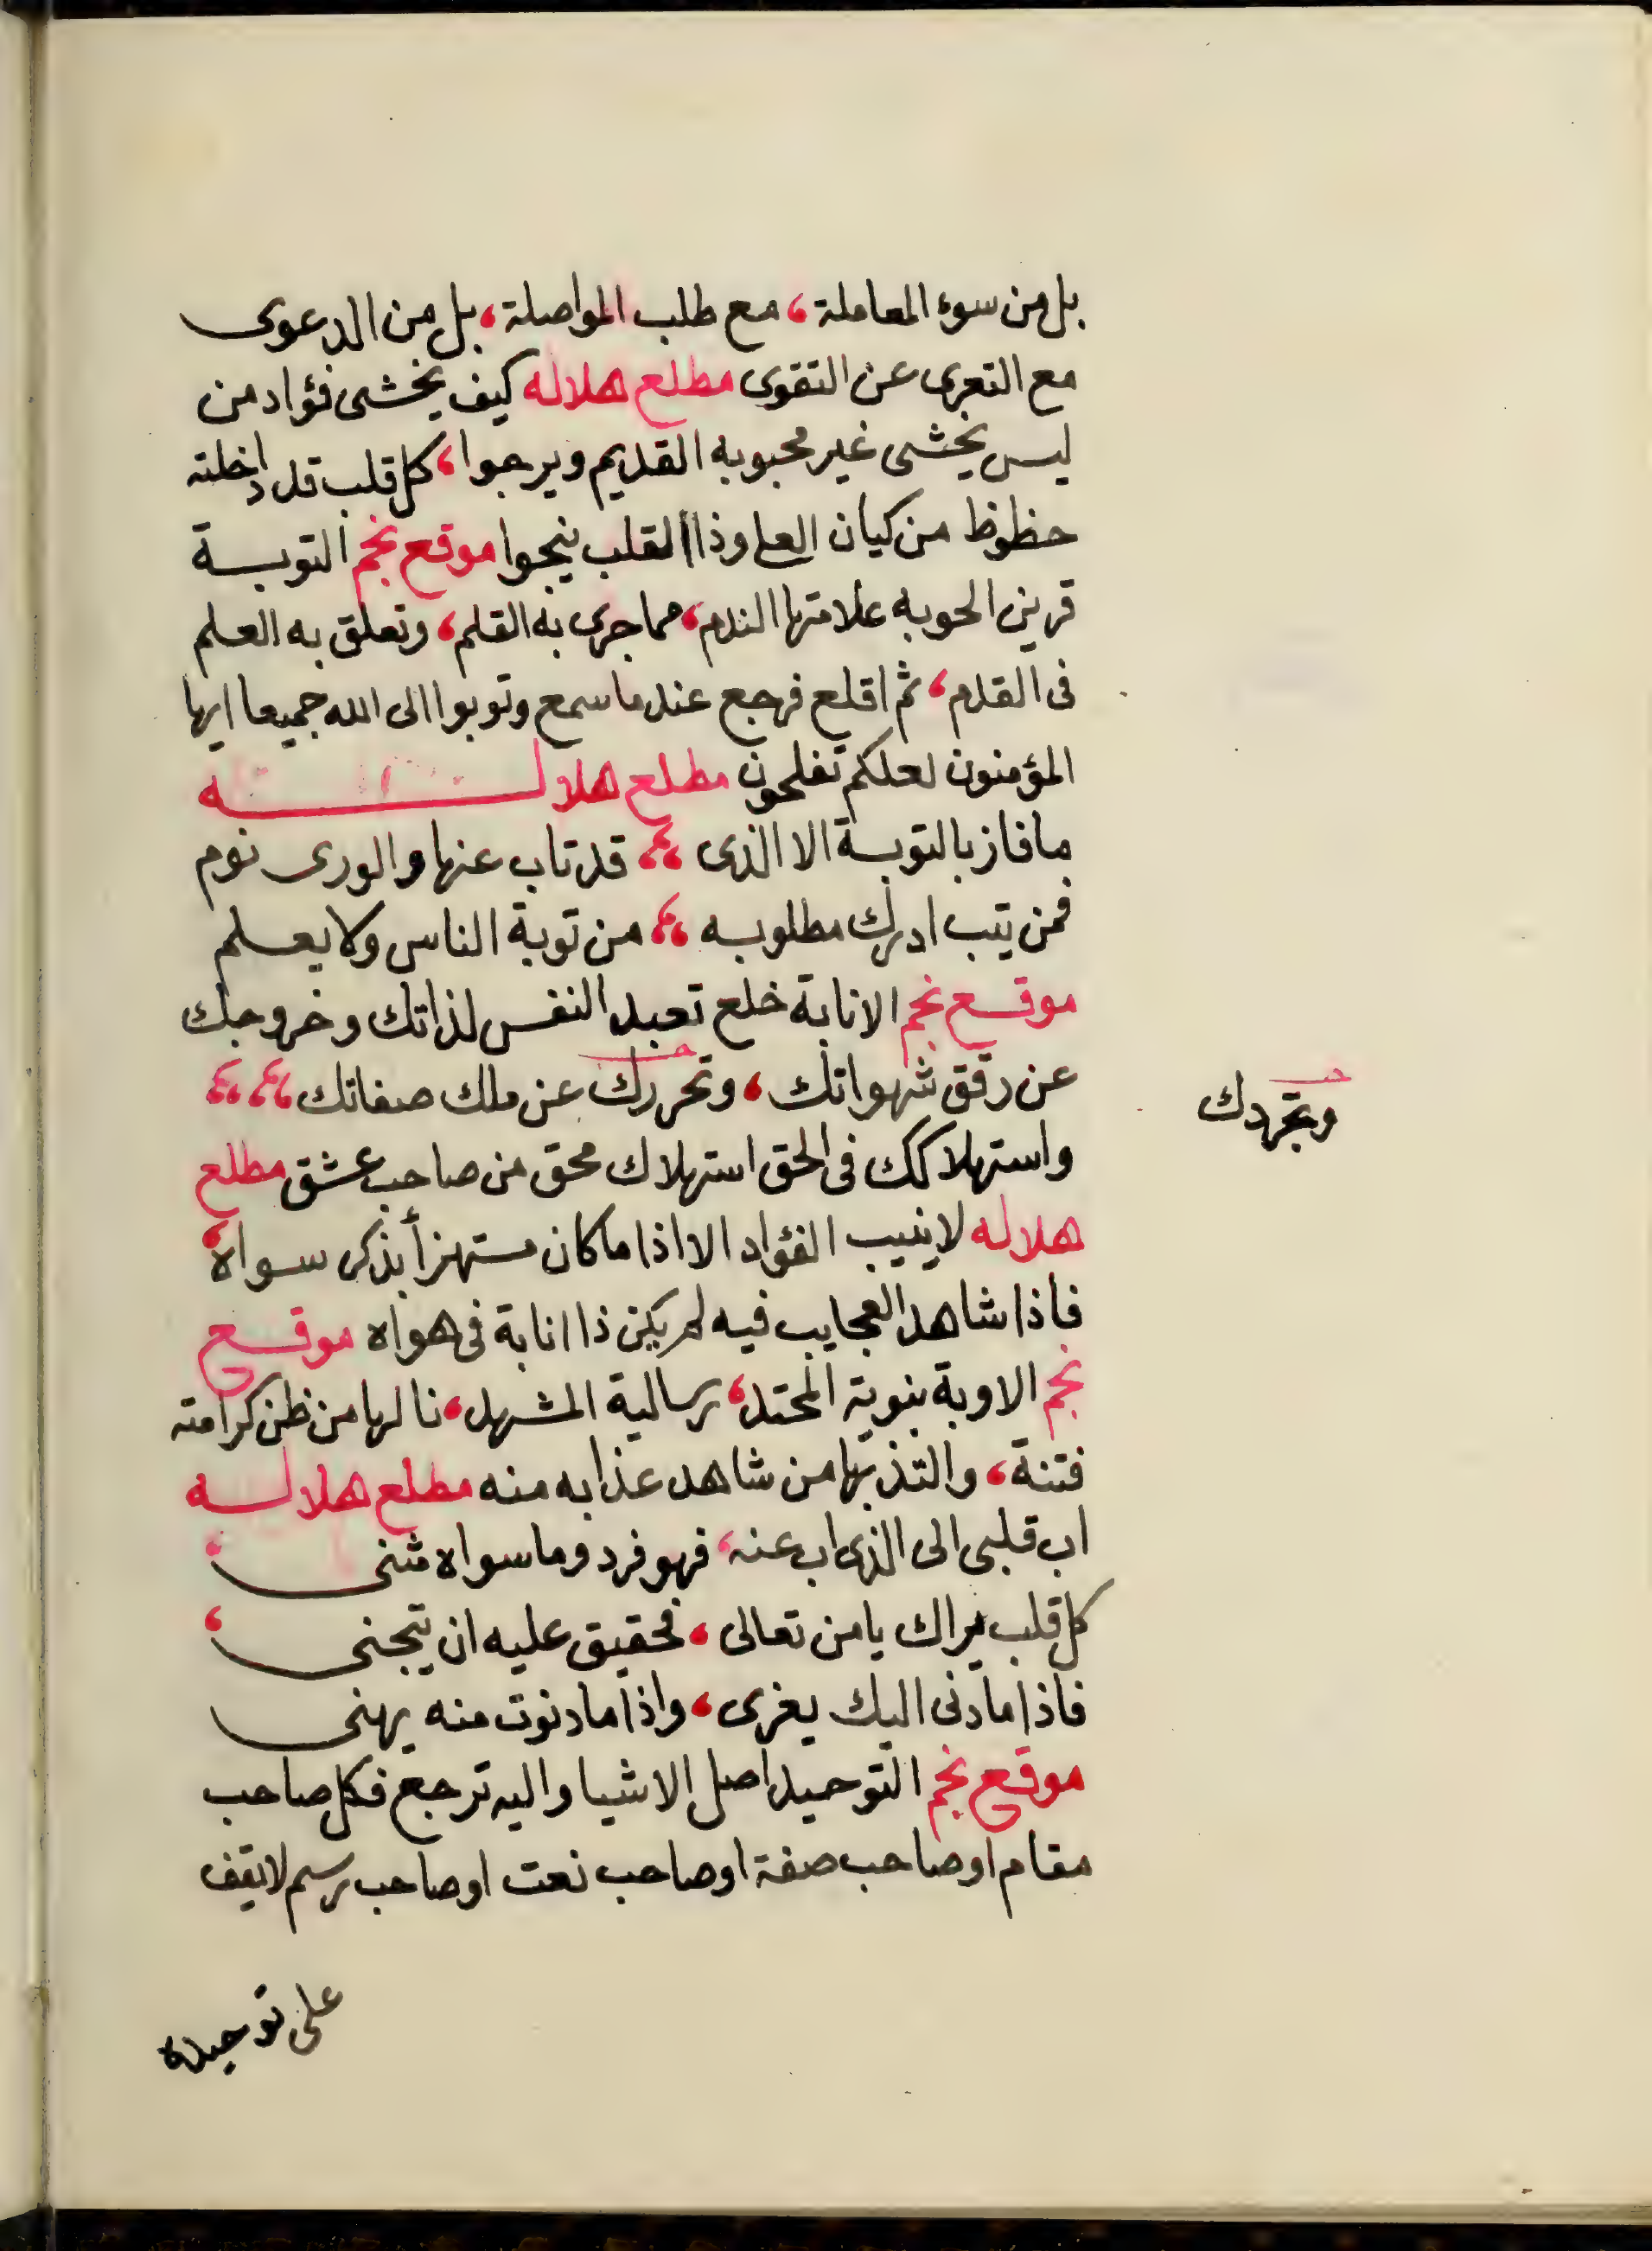 بل من سوء المعاملة، مع طلب المواصلة، بل من الدعوى
مع التعرى عن التقوى مطلع هلاله كيف يخشى فؤاد من
ليس يخشى غير محبوبه القديم ويرجوا، كل قلب قد داخلته
حظوظ من كيان العلى وذا القلب ينجوا موقع نجم التوبة
قرين الحوبه علامتها الندم، مما جرى به القلم، وتعلق به العلم
فى القدم، ثم اقلع فرجع عندما سمع وتوبوا الى الله جميعا ايها
المؤمنون لعلكم تفلحون مطلع هلاله
ما فاز بالتوبة الا الذى ،، قد تاب عنها والورى نوم
فمن يتب ادرك مطلوبه ،، من توبة الناس ولا يعلم
موقع نجم الانابة خلع تعبد النفس لذاتك وخروجك
عن رقق شهواتك، وتحررك عن ملك صفاتك ،،،،
وتجردك
واستهلاكك فى الحق استهلاك محق من صاحب عشق مطلع
هلاله لا ينيب الفؤاد الا اذا ما كان مستهزأ بذكر سواه،
فاذا شاهد العجايب فيه لم يكن ذا انابة فى هواه موقع
نجم الاوبة بنوية المحتد، رسالية المشهد، نالها من ظن كرامته
فتنة، والتذ بها من شاهد عذابه منه مطلع هلاله
اب قلبى الى الذى اب عنه، فهو فرد وما سواه مثنى،
كل قلب يراك يا من تعالى، فحقيق عليه ان يتجنى،
فاذا ما دنى اليك يغرى، واذا ما دنوت منه يهنى
موقع نجم التوحيد اصل الاشيا واليه ترجع فكل صاحب
مقام او صاحب صفة او صاحب نعت او صاحب رسم لا يقف
على توحيده